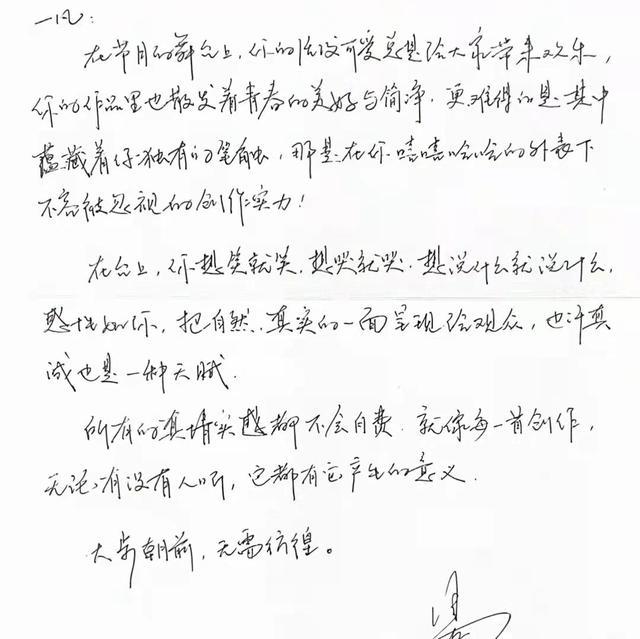 一凡：
在节目的舞台上，你的活泼可爱总是给大家带来欢乐，
你的作品里也散发着青春的美好与简净，更难得的是其中
蕴藏着你独有的笔触，那是在你嘻嘻哈哈的外表下
不容被忽视的创作实力！
在台上，你想笑就笑，想哭就哭，想说什么就说什么，
感性如你，把自然、真实的一面呈现给观众，也许真
诚也是一种天赋．
所有的真情实感都不会白费．就像每一首创作，
无论有没有人听，它都有它产生的意义．
大步朝前，无需彷徨。